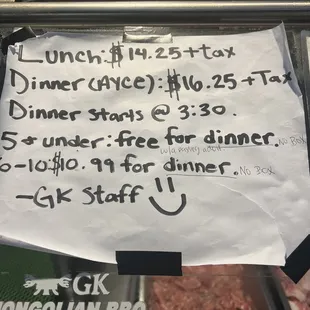 Lunch: $14.25 + tax
Dinner (AYCE): $16.25 + Tax
Dinner starts @ 3:30.
5 & under: free for dinner. No Box
6-10: $10.99 for dinner. No Box
-GK Staff
GK
MONGOLIAN BBQ